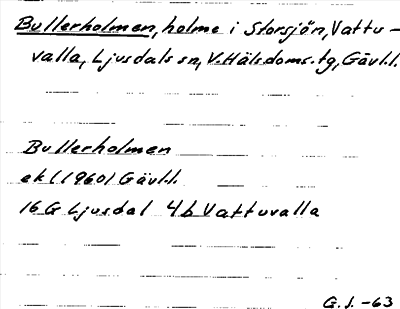 Bullerholmen, holme i Storsjön, Vattu-
valla, Ljusdals sn, V. Hälsdoms. tg, Gävl.l.
Bullerholmen
ek (1960) Gävl.l.
16 G Ljusdal 4b Vattuvalla
G. J. -63